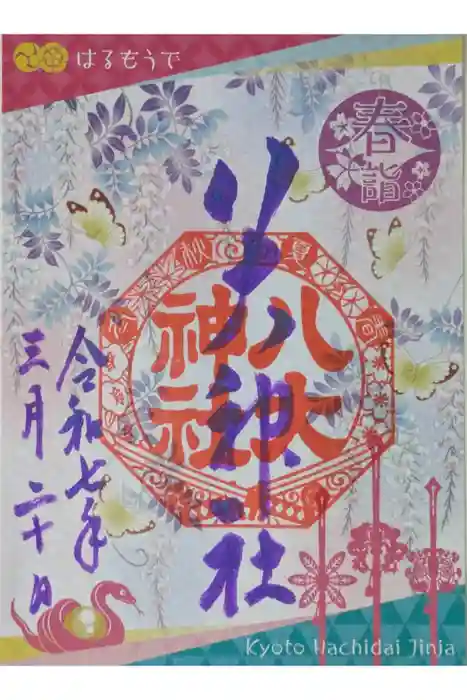 はるもうで
春詣
八大神社
春
夏
秋
冬
八大
神社
令和七年
三月二十日
Kyoto Hachidai Jinja